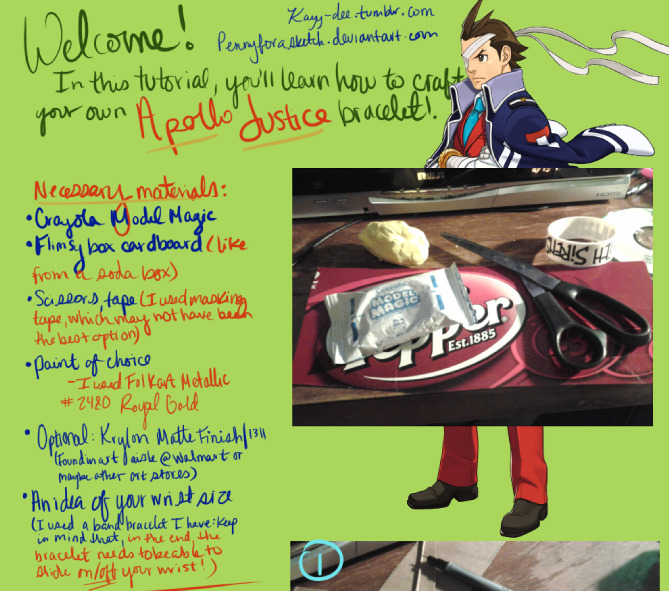 Welcome!
Kayy-dee.tumblr.com
Pennyforasketch.deviantart.com
In this tutorial, you'll learn how to craft
your own Apollo Justice bracelet!
Necessary materials:
•Crayola Model Magic
•Flimsy box cardboard (like
from a soda box)
•Scissors, tape (I used masking
tape, which may not have been
the best option)
•paint of choice
-I used FolkArt Metallic
#2480 Royal Gold
•Optional: Krylon Matte Finish/1311
(found in art aisle @ Walmart or
maybe other art stores)
•An idea of your wrist size
(I used a band bracelet I have: Keep
in mind that, in the end, the
bracelet needs to be able to
slide on/off your wrist!)
HDMI
MODEL
MAGIC
Pepper
Est.1885
1